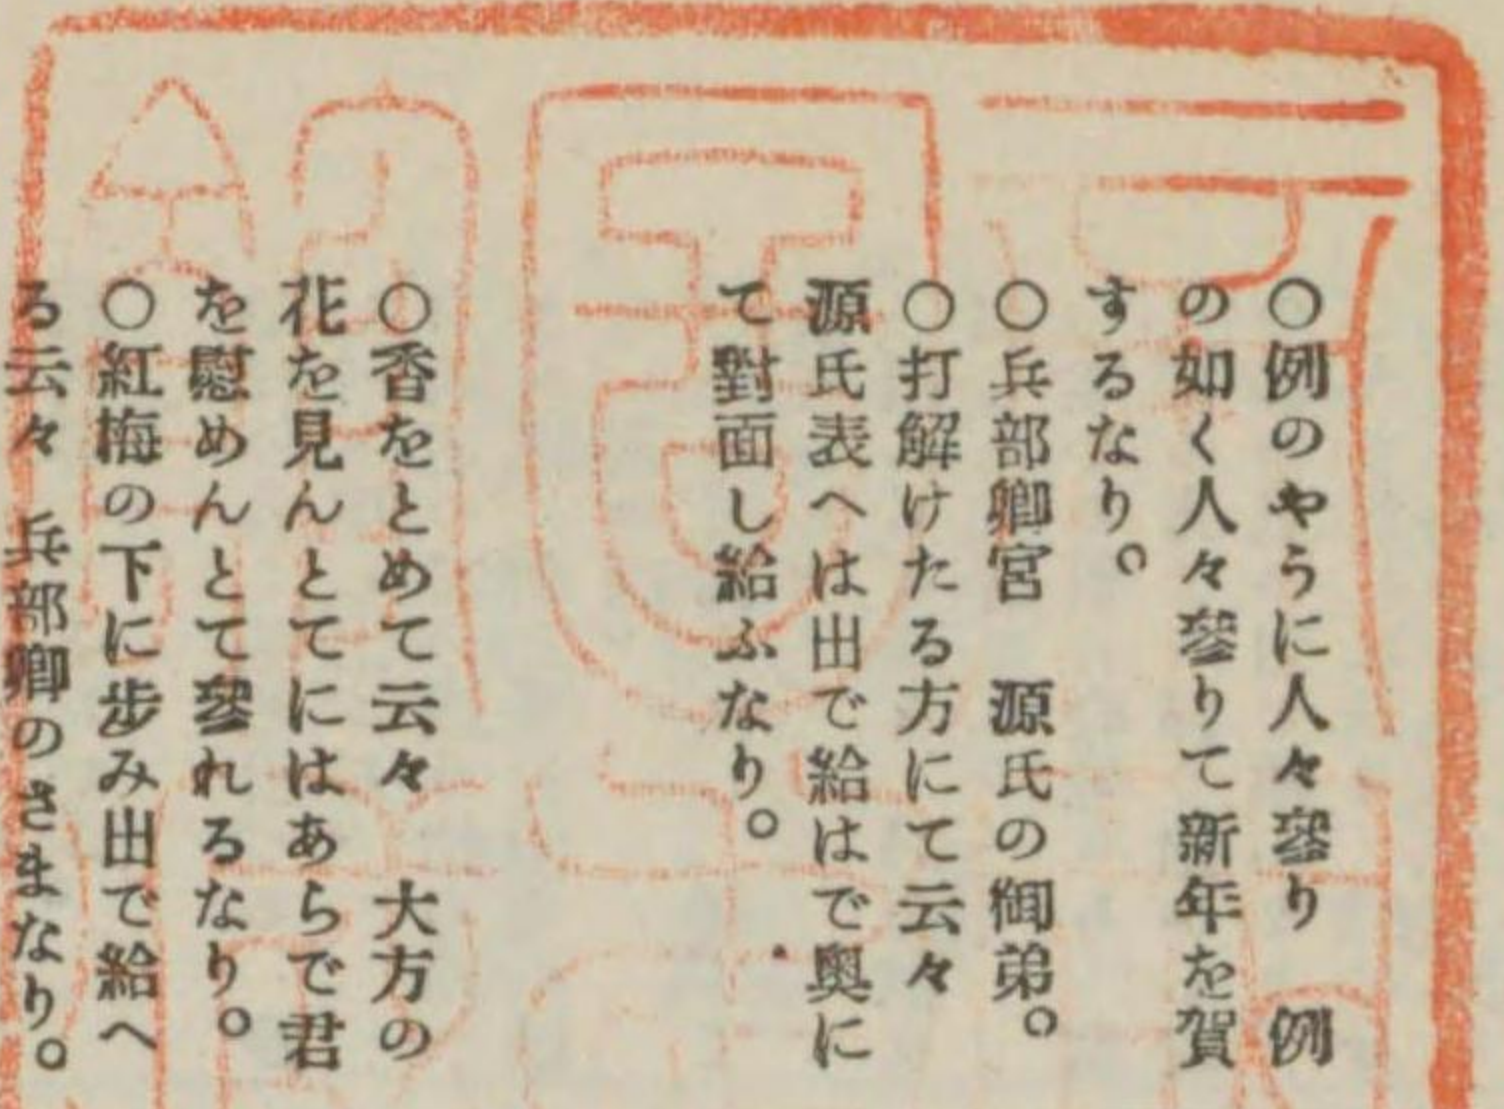 ○例のやうに人々參り　例
の如く人々參りて新年を賀
するなり。
○兵部卿宮　源氏の御弟。
○打解けたる方にて云々
源氏表へは出で給はで奧に
て對面し給ふなり。
○香をとめて云々　大方の
花を見んとてにはあらで君
を慰めんとて參れるなり。
○紅梅の下に步み出で給へ
る云々　兵部卿のさまなり。